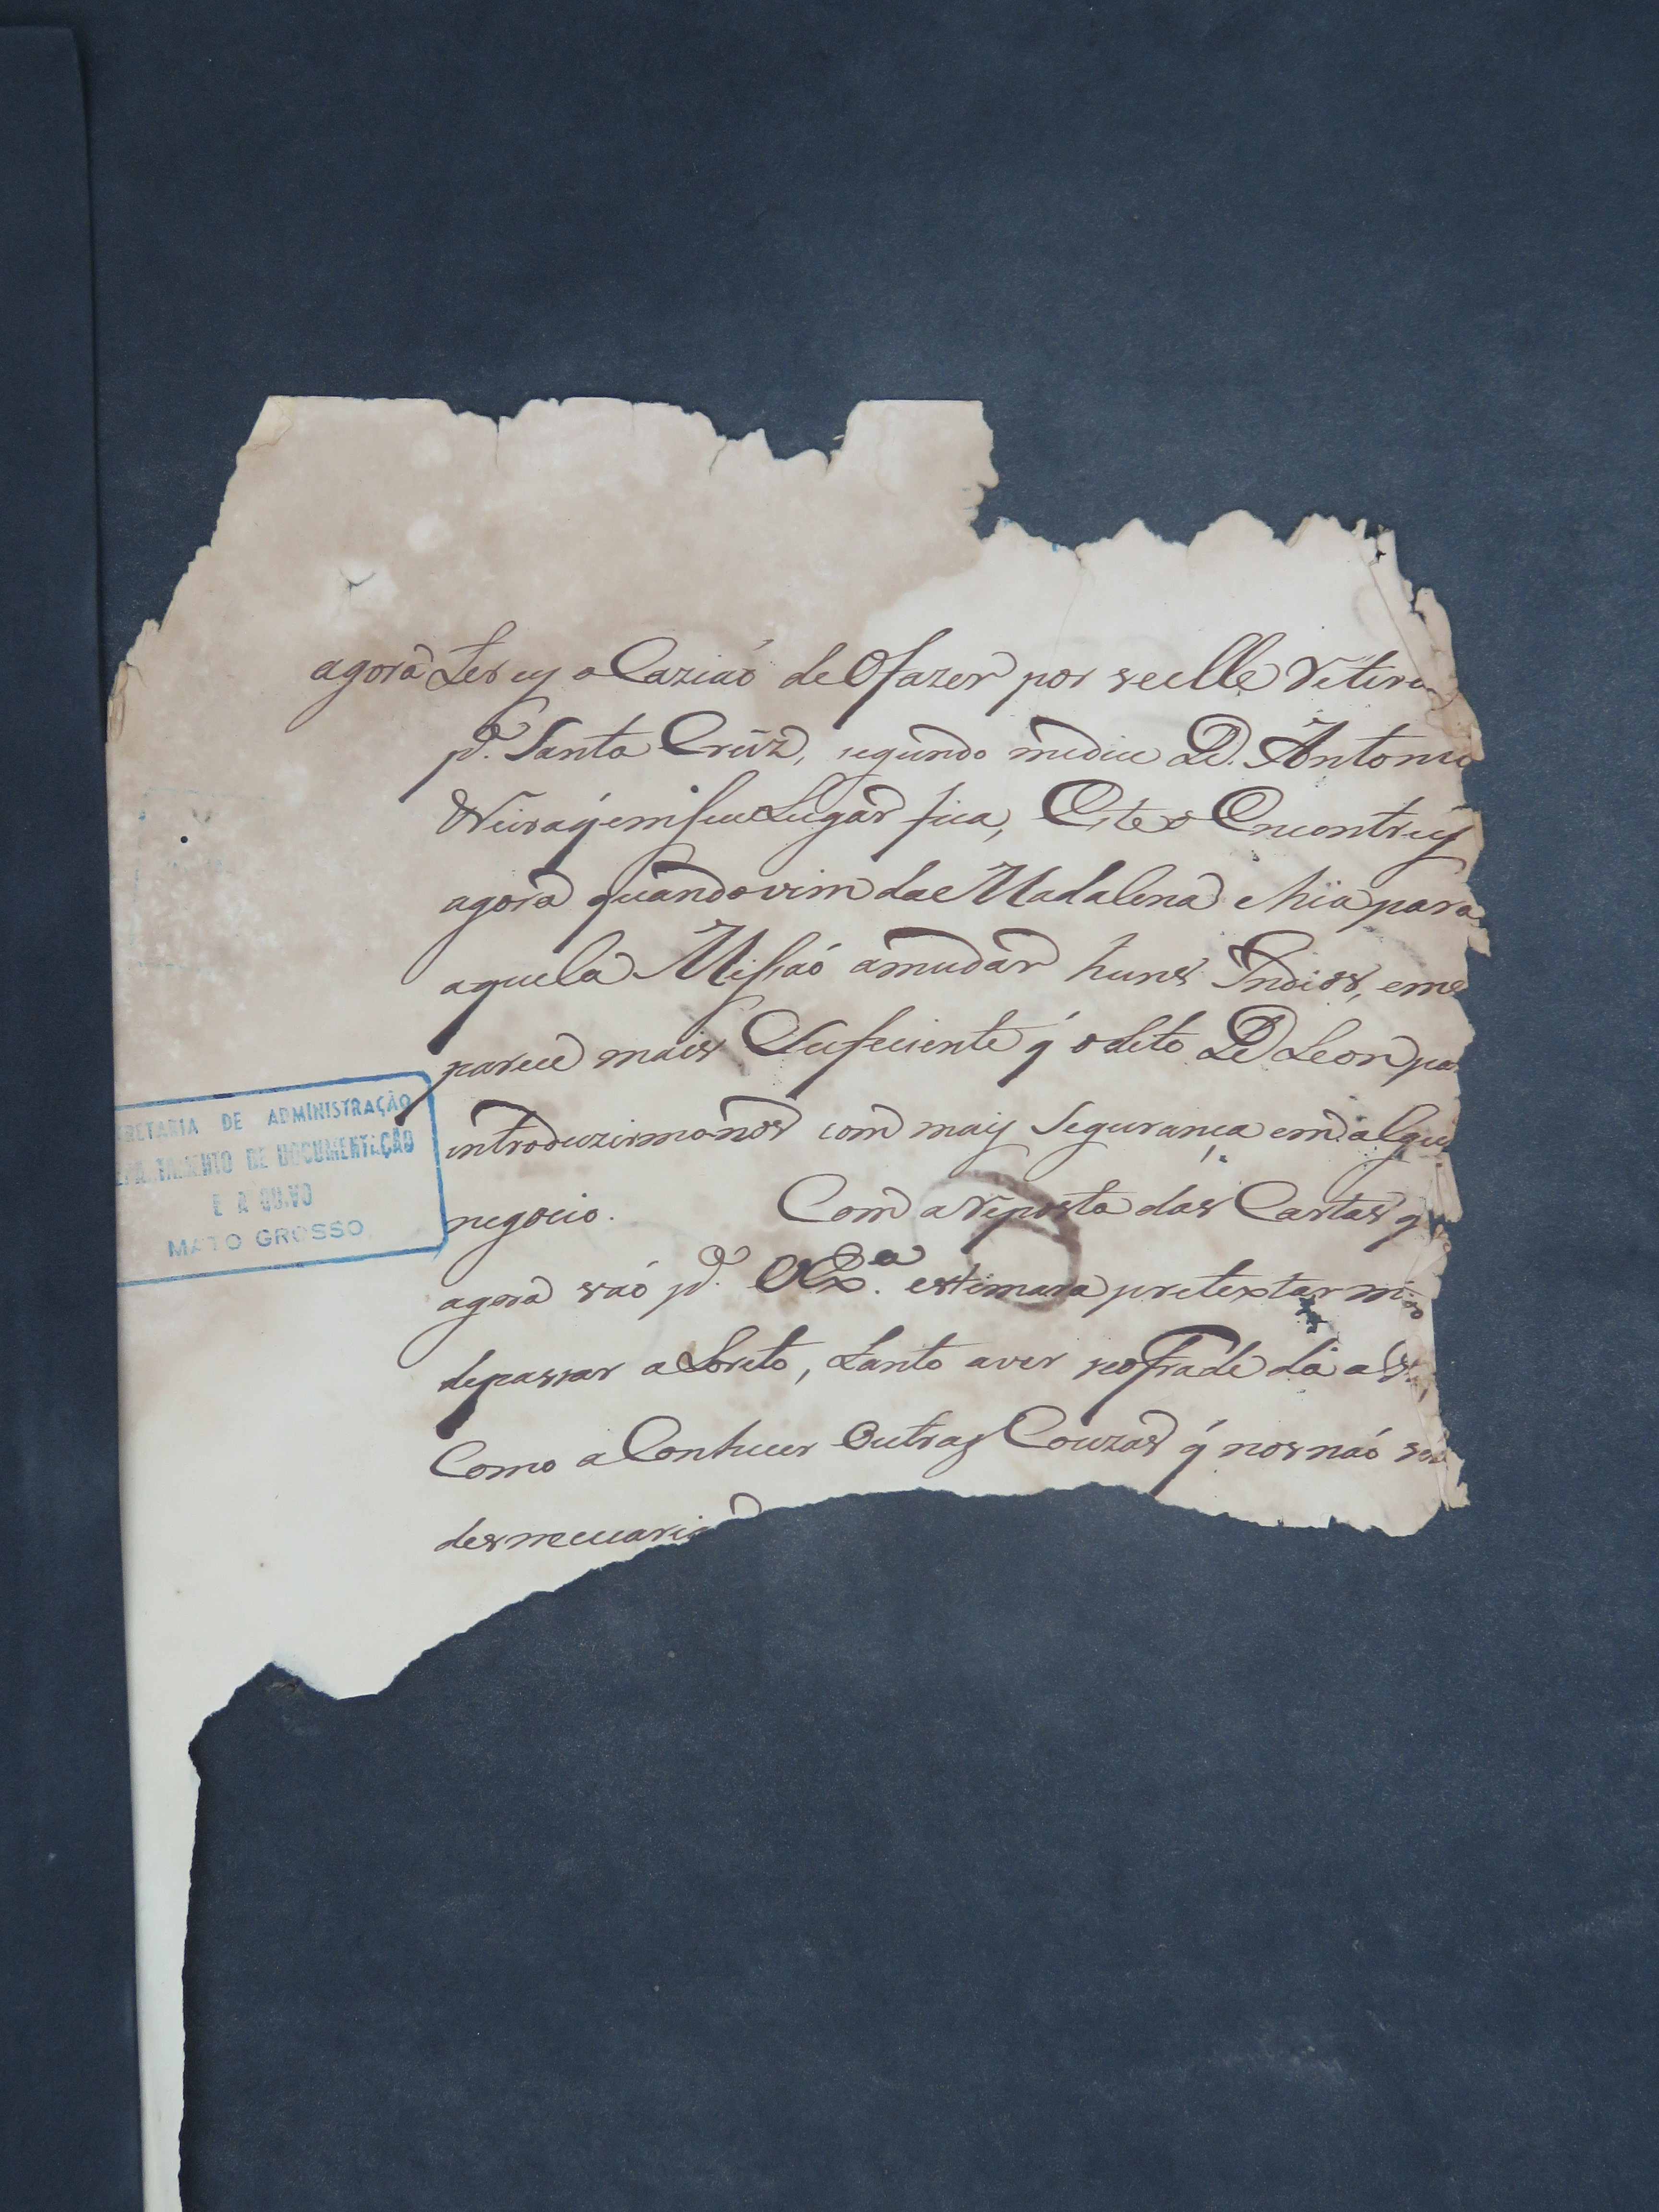 agora terey o Caziaó de Ofazer por seelle retira
pª. Santa Crúz, segundo medice D. Antonio
q̃emseuLugar fica, Este o Encontrey
agora quandovim da Madalena e hia para
aquela Missaó amudar huns Indios, eme
parece mais Suficiente q́ odito D Leon pa
introduzirmonos com mais Segurança em algu
negocio. Com areposta das Cartas q
agora vaó pª. VEx.ª estimara pretextar
depassar aLoreto, tanto aver seofrade dá
Como aConhecer Outras Couzas q́ nos naó
desnecearia
RETARIA DE ADMINISTRAÇÃO
EPARTAMENTO DE DOCUMENTAÇÃO
E A QUIVO
MATO GROSSO